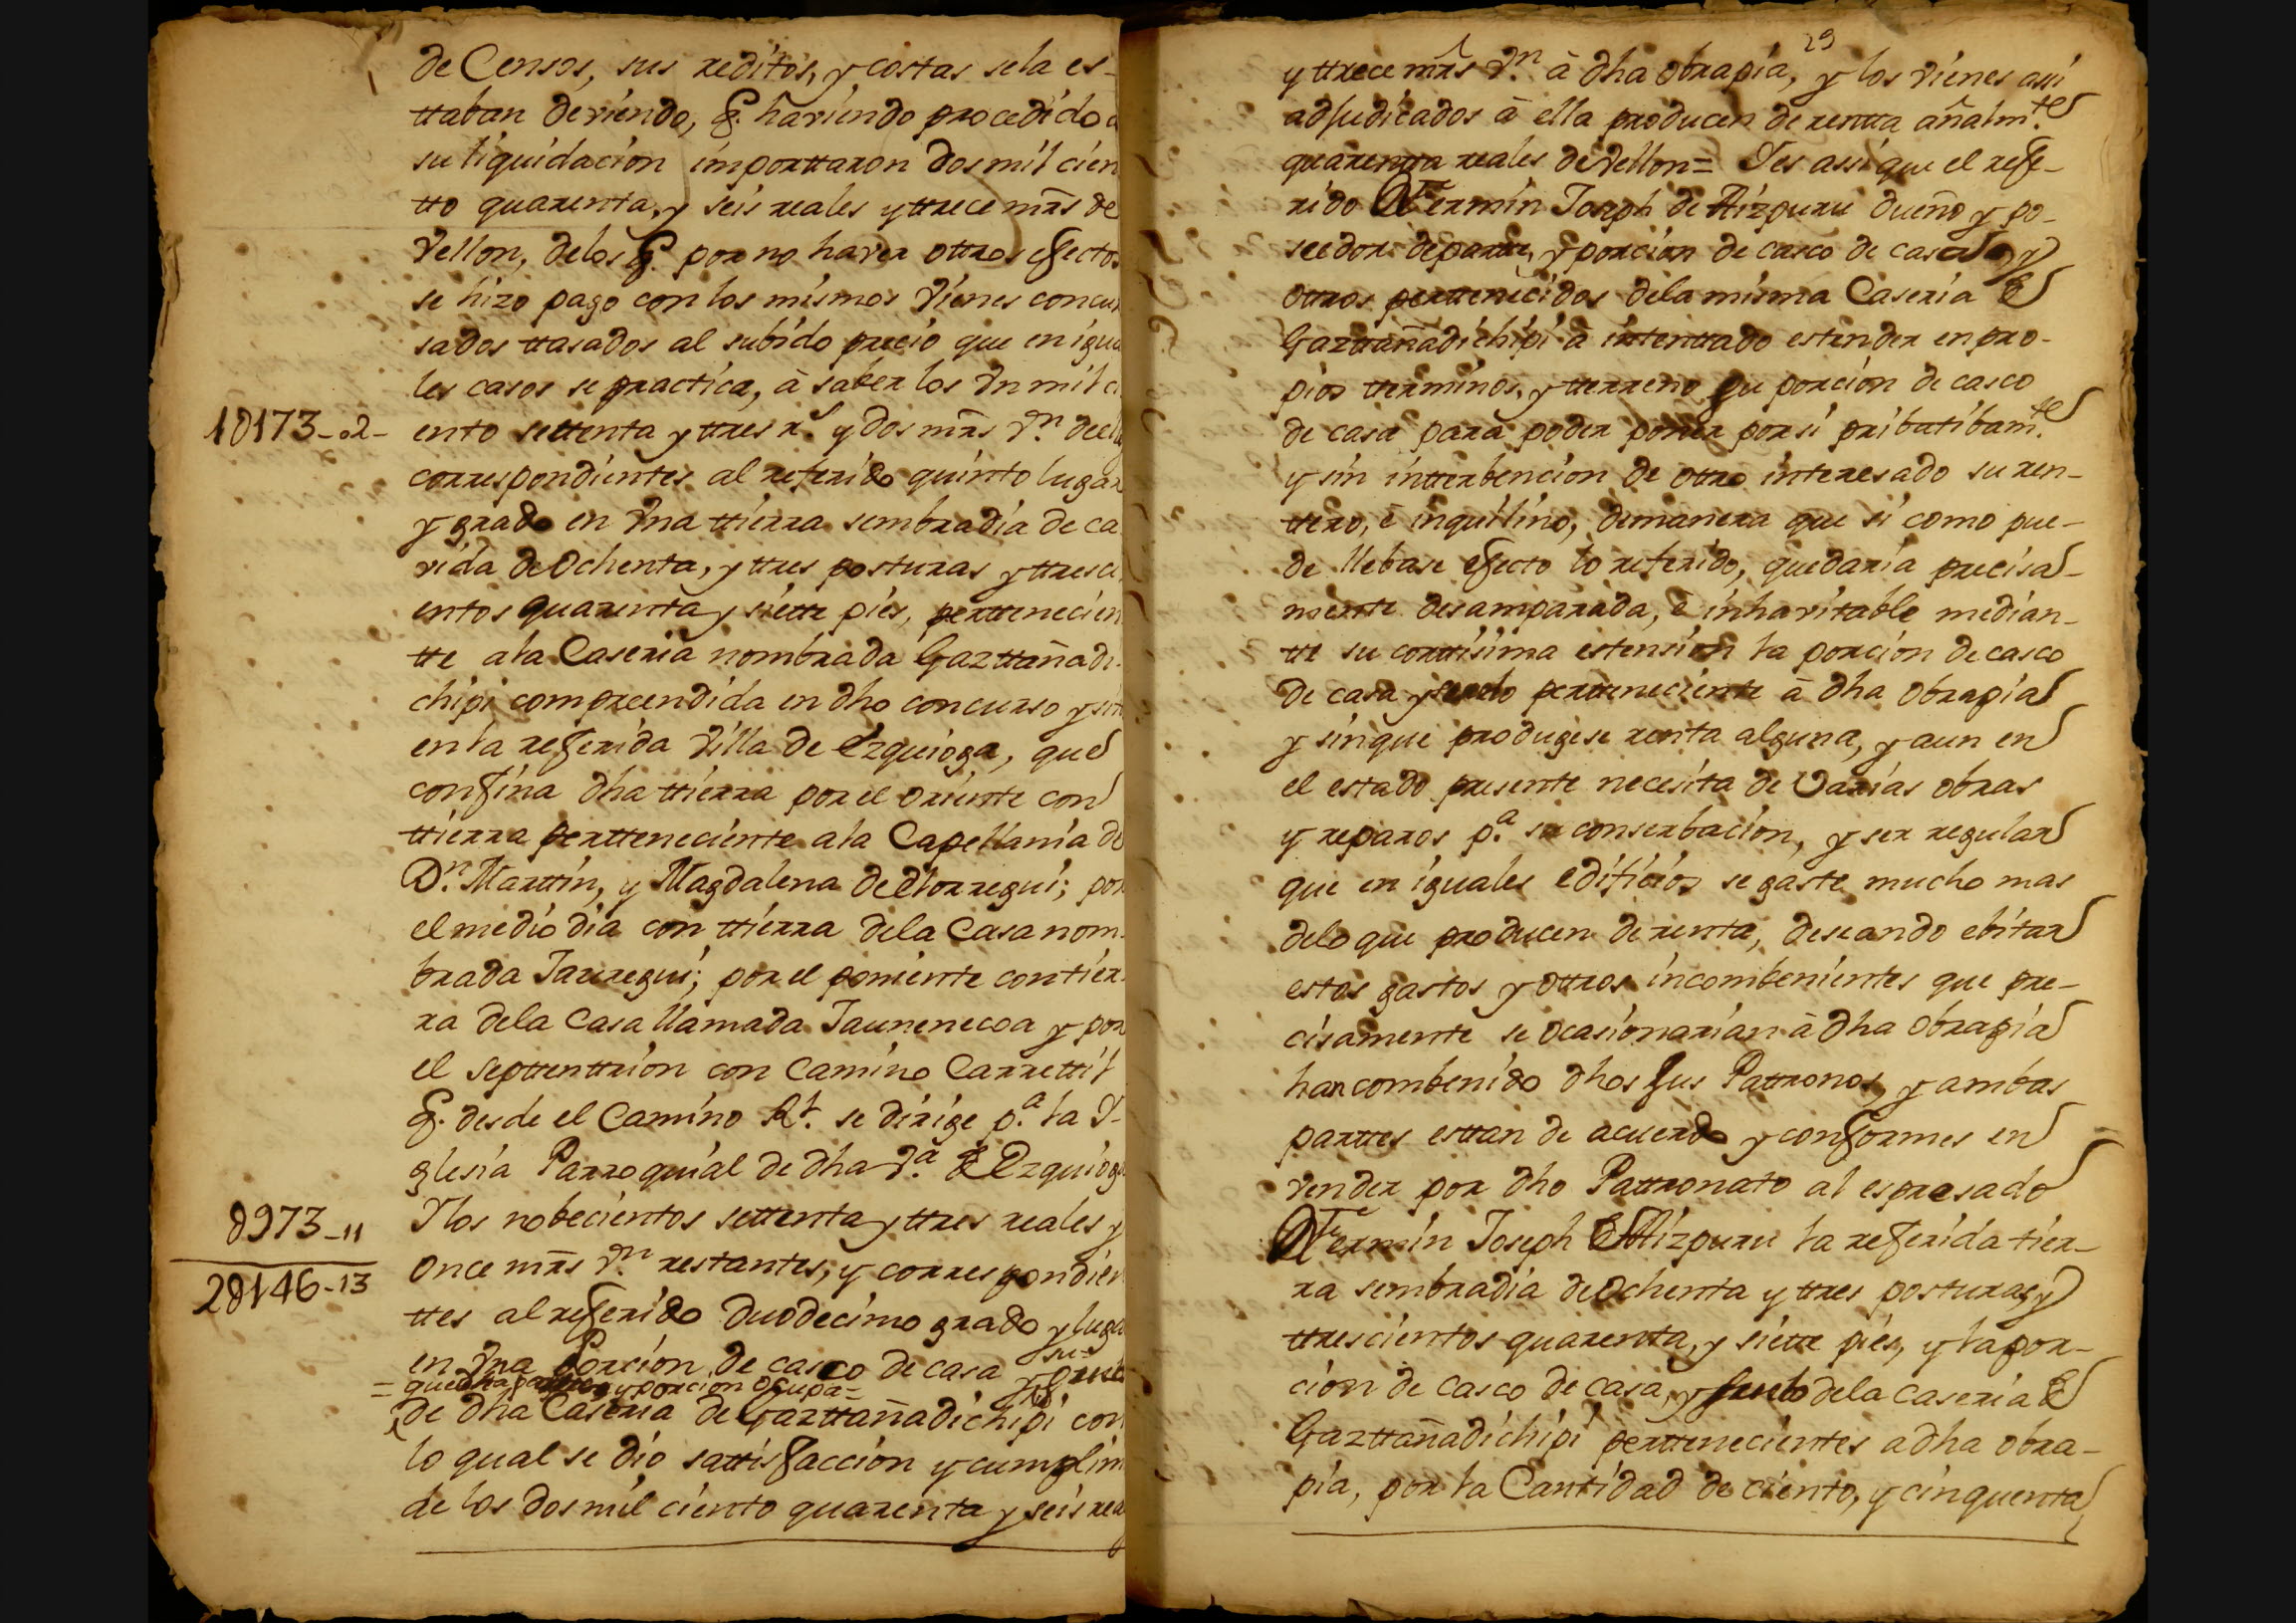 de Censos, sus reditos, y costas sela es-
ttaban deviendo, q. haviendo procedido a
su liquidacion importtaron dos mil cien
tto quarenta, y seis reales y ttrece mrs de
Vellon, delos q. por no haver ottros efectos
se hizo pago con los mismos Vienes concur
sados ttasados al subido precio que en igua
les casos se practica, à saber los Vn mil ci
1U173-02- ento settenta y ttres rs. y dos mrs Vn. deellos
correspondientes al referido quinto lugar
y grado en Vna ttierra sembradia de ca
vida de Ochenta, y ttres posturas y ttresci
entos quarenta y siette pies, perttenecien
tte ala Caseria nombrada Gazttañadi
chipi compreendida en dho concurso y sitt
en la referida Villa de Ezquioga, que
confina dha ttierra por el oriente con
ttierra pertteneciente ala Capellania de
Dn. Marttin, y Magdalena de Elorregui; por
el medio dia con ttierra dela Casa nom
brada Jaurregui; por el poniente con tier
ra dela Casa llamada Jaunenecoa y por
el septtenttrion con Camino Carrettil
q. desde el Camino Rl. se dirige pa. la Y-
glesia Parroquial de dha Va. de Ezquioga
U973-11 Ylos nobecientos settenta y ttres reales y
2U146-13 once mrs Vn. restantes, y correspondien
ttes al referido duodecimo grado y lugar
en Vna Porcion de casco de casa y su
= que dha y porcion ocupa=
de dha Caseria de Gazttañadichipi con
lo qual se dio sattisfaccion y cumplim
de los dos mil ciento quarenta y seis rea
29
y ttrece mrs Vn. à dha Obrapia, y los Vienes asi
adjudicados à ella producen de rentta añalmte.
quarentta reales de Vellon= Y es assi que el refe-
rido Fermin Joseph de Aizpuru dueño y po-
seedor de partte, y porcion de casco de casa, y
ottros perttenecidos dela misma Caseria de
Gazttañadichipi à intenttado estender en pro-
pios tterminos, y tterreno su porcion de casco
de casa para poder poner por si pribatibamte.
y sin intterbencion de ottro interesado su ren-
ttero, è inquilino, demanera que si como pue-
de llebase efecto lo referido, quedaria precisa-
mente desamparada, è inhavitable median-
tte su corttisima estension la porcion de casco
de casa y suelo pertteneciente à dha Obrapia
y sin que produgese renta alguna, y aun en
el estado presente necesita de Varias obras
y reparos pa. su conserbacion, y ser regular
que en iguales edificios se gaste mucho mas
delo que producen de renta, deseando ebitar
estos gastos y ottros incombenientes que pre-
cisamente se ocasionarian à dha Obrapia
han combenido dhos sus Pattronos, y ambas
parttes esttan de acuerdo y conformes en
vender por dho Pattronato al espresado
Fermin Joseph de Aizpuru la referida tier-
ra sembradia de Ochenta y ttres posturas, y
ttrescientos quarenta, y siette pies, y la por-
cion de casco de casa, y suelo dela caseria de
Gazttañadichipi perttenecientes a dha obra-
pia, por la Cantidad de ciento, y cinquenta